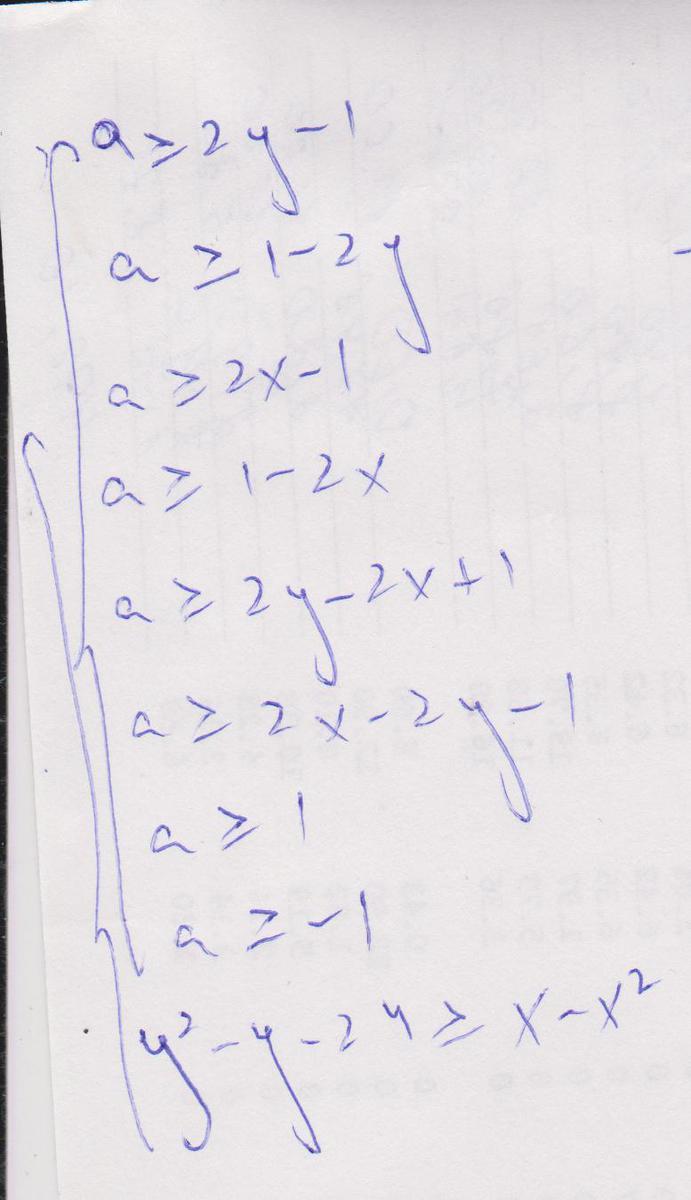 a ≥ 2y - 1
a ≥ 1 - 2y
a ≥ 2x - 1
a ≥ 1 - 2x
a ≥ 2y - 2x + 1
a ≥ 2x - 2y - 1
a ≥ 1
a ≥ -1
y² - y - 24 ≥ x - x²